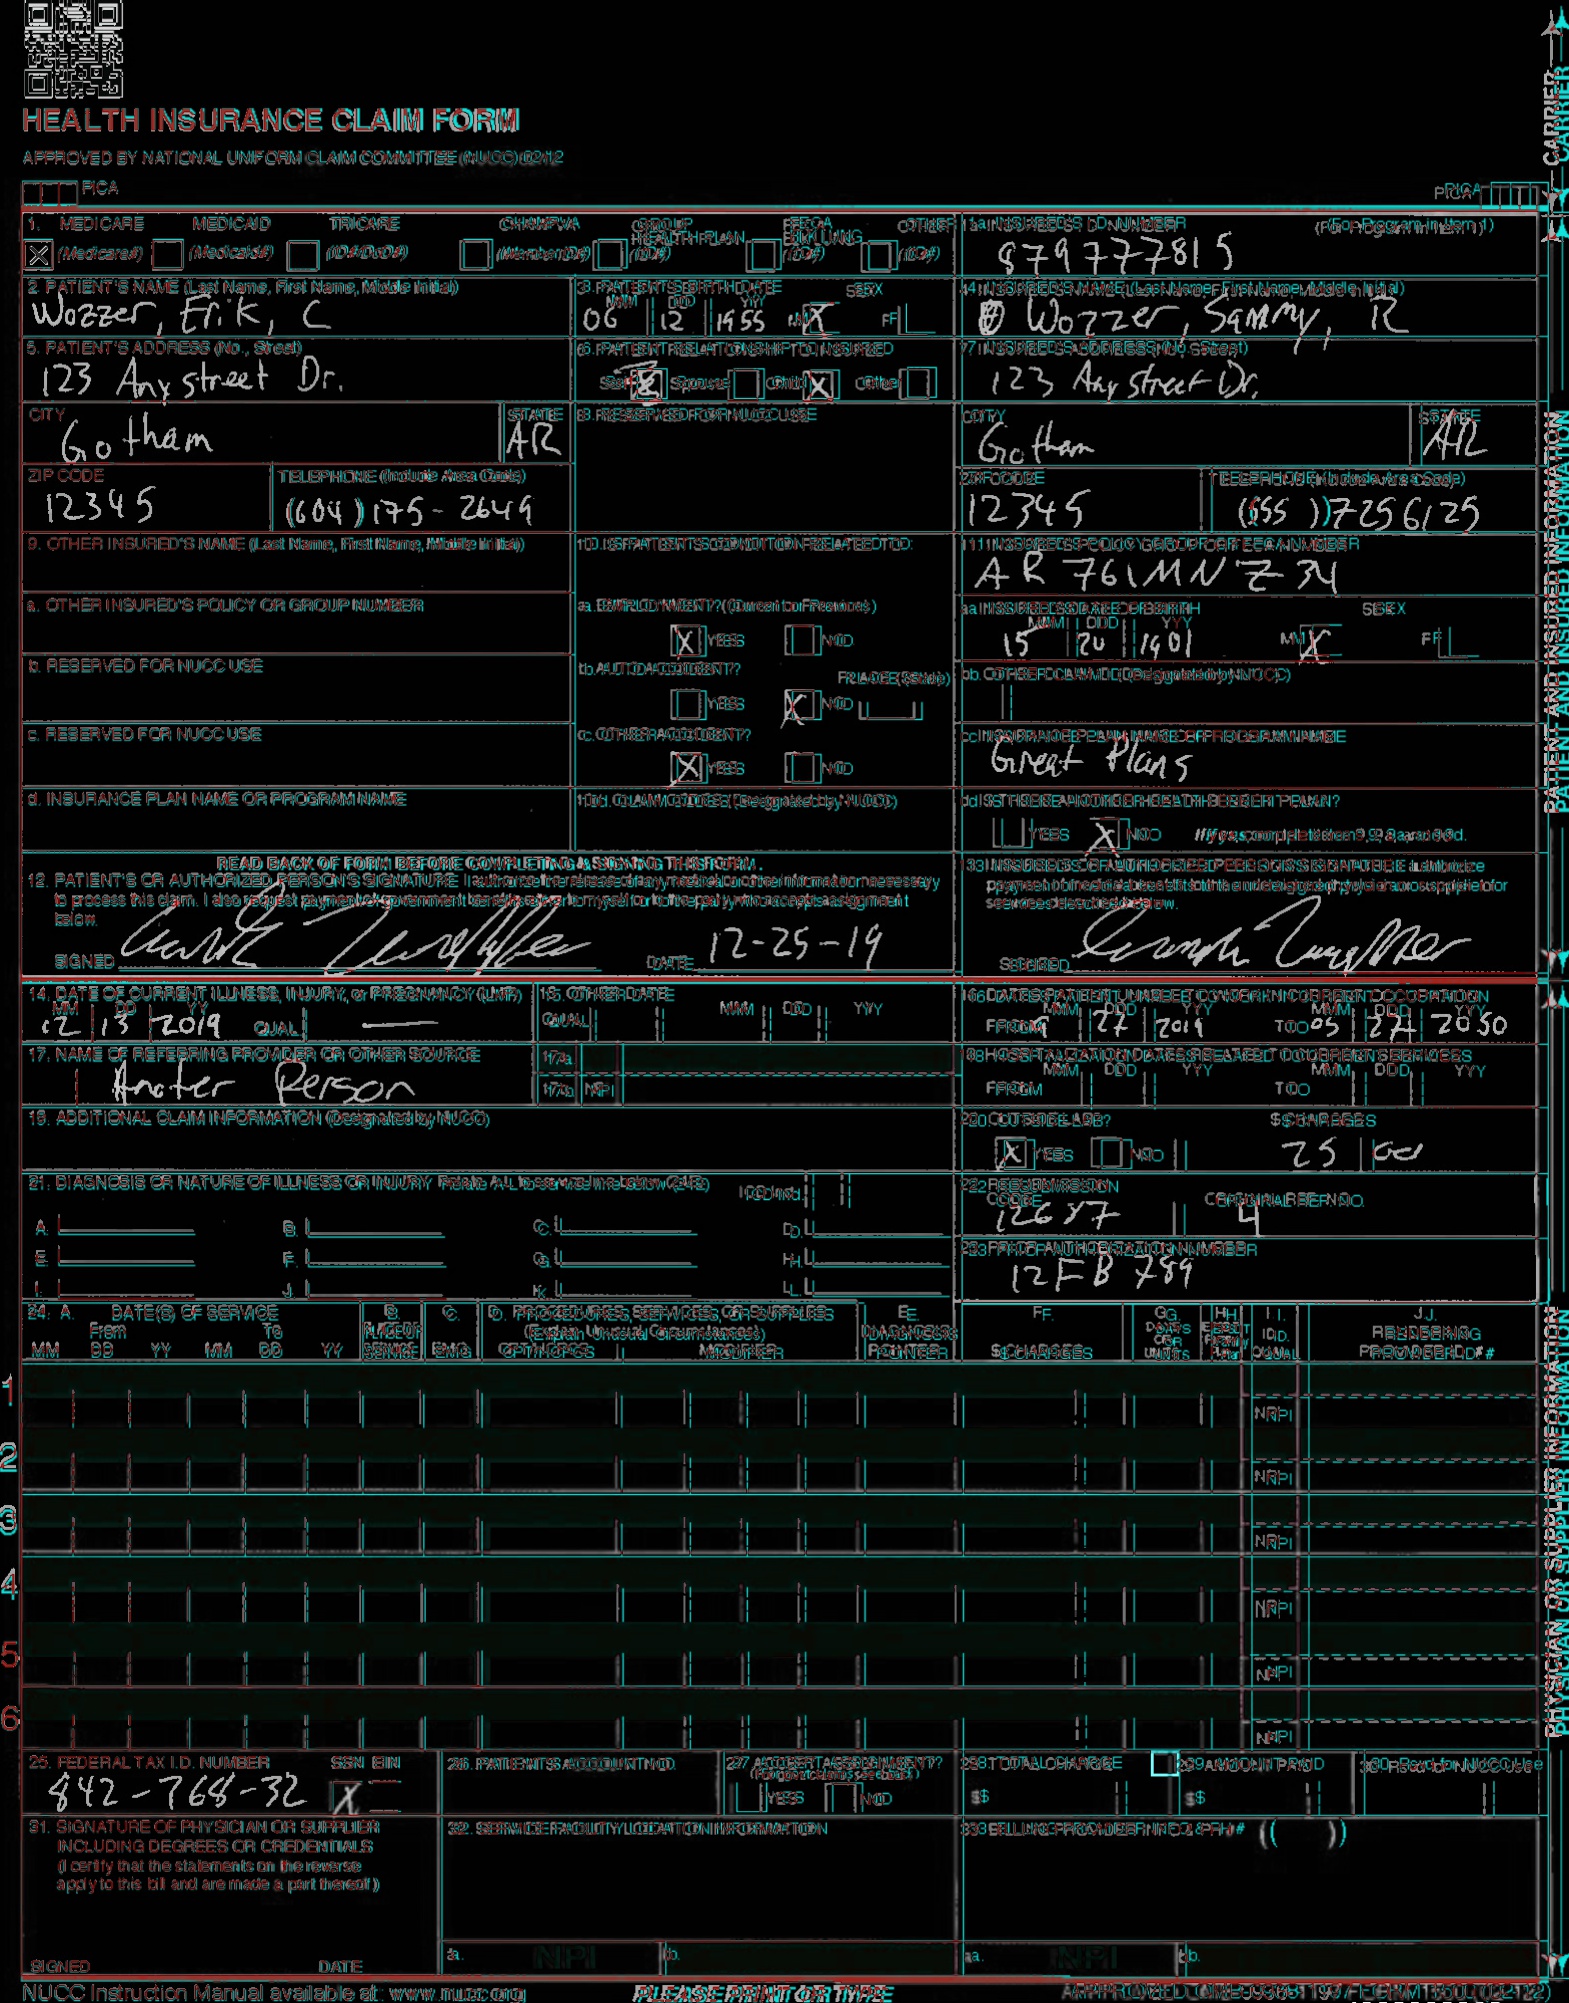 HEALTH INSURANCE CLAIM FORM
APPROVED BY NATIONAL UNIFORM CLAIM COMMITTEE (NUCC) 02/12
PICA PICA
CARRIER
1. MEDICARE MEDICAID TRICARE CHAMPVA GROUP HEALTH PLAN FECA BLK LUNG OTHER
X (Medicare#) (Medicaid#) (ID#/DoD#) (Member ID#) (ID#) (ID#) (ID#)
1a. INSURED'S I.D. NUMBER (For Program in Item 1)
879777815
2. PATIENT'S NAME (Last Name, First Name, Middle Initial)
Wozzer, Erik, C
3. PATIENT'S BIRTH DATE SEX
MM DD YY
06 12 1955 M X F
4. INSURED'S NAME (Last Name, First Name, Middle Initial)
Wozzer, Sammy, R
5. PATIENT'S ADDRESS (No., Street)
123 Any street Dr.
6. PATIENT RELATIONSHIP TO INSURED
Self Spouse Child X Other
7. INSURED'S ADDRESS (No., Street)
123 Any street Dr.
CITY STATE
Gotham AR
8. RESERVED FOR NUCC USE
CITY STATE
Gotham AR
ZIP CODE TELEPHONE (Include Area Code)
12345 (604) 175-2649
ZIP CODE TELEPHONE (Include Area Code)
12345 (555) 7256125
9. OTHER INSURED'S NAME (Last Name, First Name, Middle Initial)
10. IS PATIENT'S CONDITION RELATED TO:
11. INSURED'S POLICY GROUP OR FECA NUMBER
AR 761MNZ34
a. OTHER INSURED'S POLICY OR GROUP NUMBER
a. EMPLOYMENT? (Current or Previous)
X YES NO
a. INSURED'S DATE OF BIRTH SEX
MM DD YY
15 20 1901 M X F
b. RESERVED FOR NUCC USE
b. AUTO ACCIDENT? PLACE (State)
YES X NO
b. OTHER CLAIM ID (Designated by NUCC)
c. RESERVED FOR NUCC USE
c. OTHER ACCIDENT?
X YES NO
c. INSURANCE PLAN NAME OR PROGRAM NAME
Great Plans
d. INSURANCE PLAN NAME OR PROGRAM NAME
10d. CLAIM CODES (Designated by NUCC)
d. IS THERE ANOTHER HEALTH BENEFIT PLAN?
YES X NO If yes, complete items 9, 9a, and 9d.
READ BACK OF FORM BEFORE COMPLETING & SIGNING THIS FORM.
12. PATIENT'S OR AUTHORIZED PERSON'S SIGNATURE I authorize the release of any medical or other information necessary
to process this claim. I also request payment of government benefits either to myself or to the party who accepts assignment
below.
SIGNED DATE 12-25-19
13. INSURED'S OR AUTHORIZED PERSON'S SIGNATURE I authorize
payment of medical benefits to the undersigned physician or supplier for
services described below.
SIGNED
PATIENT AND INSURED INFORMATION
14. DATE OF CURRENT ILLNESS, INJURY, or PREGNANCY (LMP)
MM DD YY
12 13 2019 QUAL.
15. OTHER DATE
QUAL. MM DD YY
16. DATES PATIENT UNABLE TO WORK IN CURRENT OCCUPATION
MM DD YY MM DD YY
FROM 9 27 2019 TO 05 27 2030
17. NAME OF REFERRING PROVIDER OR OTHER SOURCE
Anoter Person
17a.
17b. NPI
18. HOSPITALIZATION DATES RELATED TO CURRENT SERVICES
MM DD YY MM DD YY
FROM TO
19. ADDITIONAL CLAIM INFORMATION (Designated by NUCC)
20. OUTSIDE LAB? $ CHARGES
X YES NO 25
21. DIAGNOSIS OR NATURE OF ILLNESS OR INJURY Relate A-L to service line below (24E) ICD Ind.
A. B. C. D.
E. F. G. H.
I. J. K. L.
22. RESUBMISSION CODE ORIGINAL REF. NO.
12687 4
23. PRIOR AUTHORIZATION NUMBER
12FB789
24. A. DATE(S) OF SERVICE
From To
MM DD YY MM DD YY
B. PLACE OF SERVICE
C. EMG
D. PROCEDURES, SERVICES, OR SUPPLIES
(Explain Unusual Circumstances)
CPT/HCPCS MODIFIER
E. DIAGNOSIS POINTER
F. $ CHARGES
G. DAYS OR UNITS
H. EPSDT Family Plan
I. ID. QUAL.
J. RENDERING PROVIDER ID. #
1 NPI
2 NPI
3 NPI
4 NPI
5 NPI
6 NPI
PHYSICIAN OR SUPPLIER INFORMATION
25. FEDERAL TAX I.D. NUMBER SSN EIN
842-768-32 X
26. PATIENT'S ACCOUNT NO.
27. ACCEPT ASSIGNMENT?
(For govt. claims, see back)
YES NO
28. TOTAL CHARGE
$
29. AMOUNT PAID
$
30. Rsvd for NUCC Use
31. SIGNATURE OF PHYSICIAN OR SUPPLIER
INCLUDING DEGREES OR CREDENTIALS
(I certify that the statements on the reverse
apply to this bill and are made a part thereof.)
SIGNED DATE
32. SERVICE FACILITY LOCATION INFORMATION
a. NPI b.
33. BILLING PROVIDER INFO & PH # ( )
a. NPI b.
NUCC Instruction Manual available at: www.nucc.org
PLEASE PRINT OR TYPE
APPROVED OMB-0938-1197 FORM 1500 (02-12)